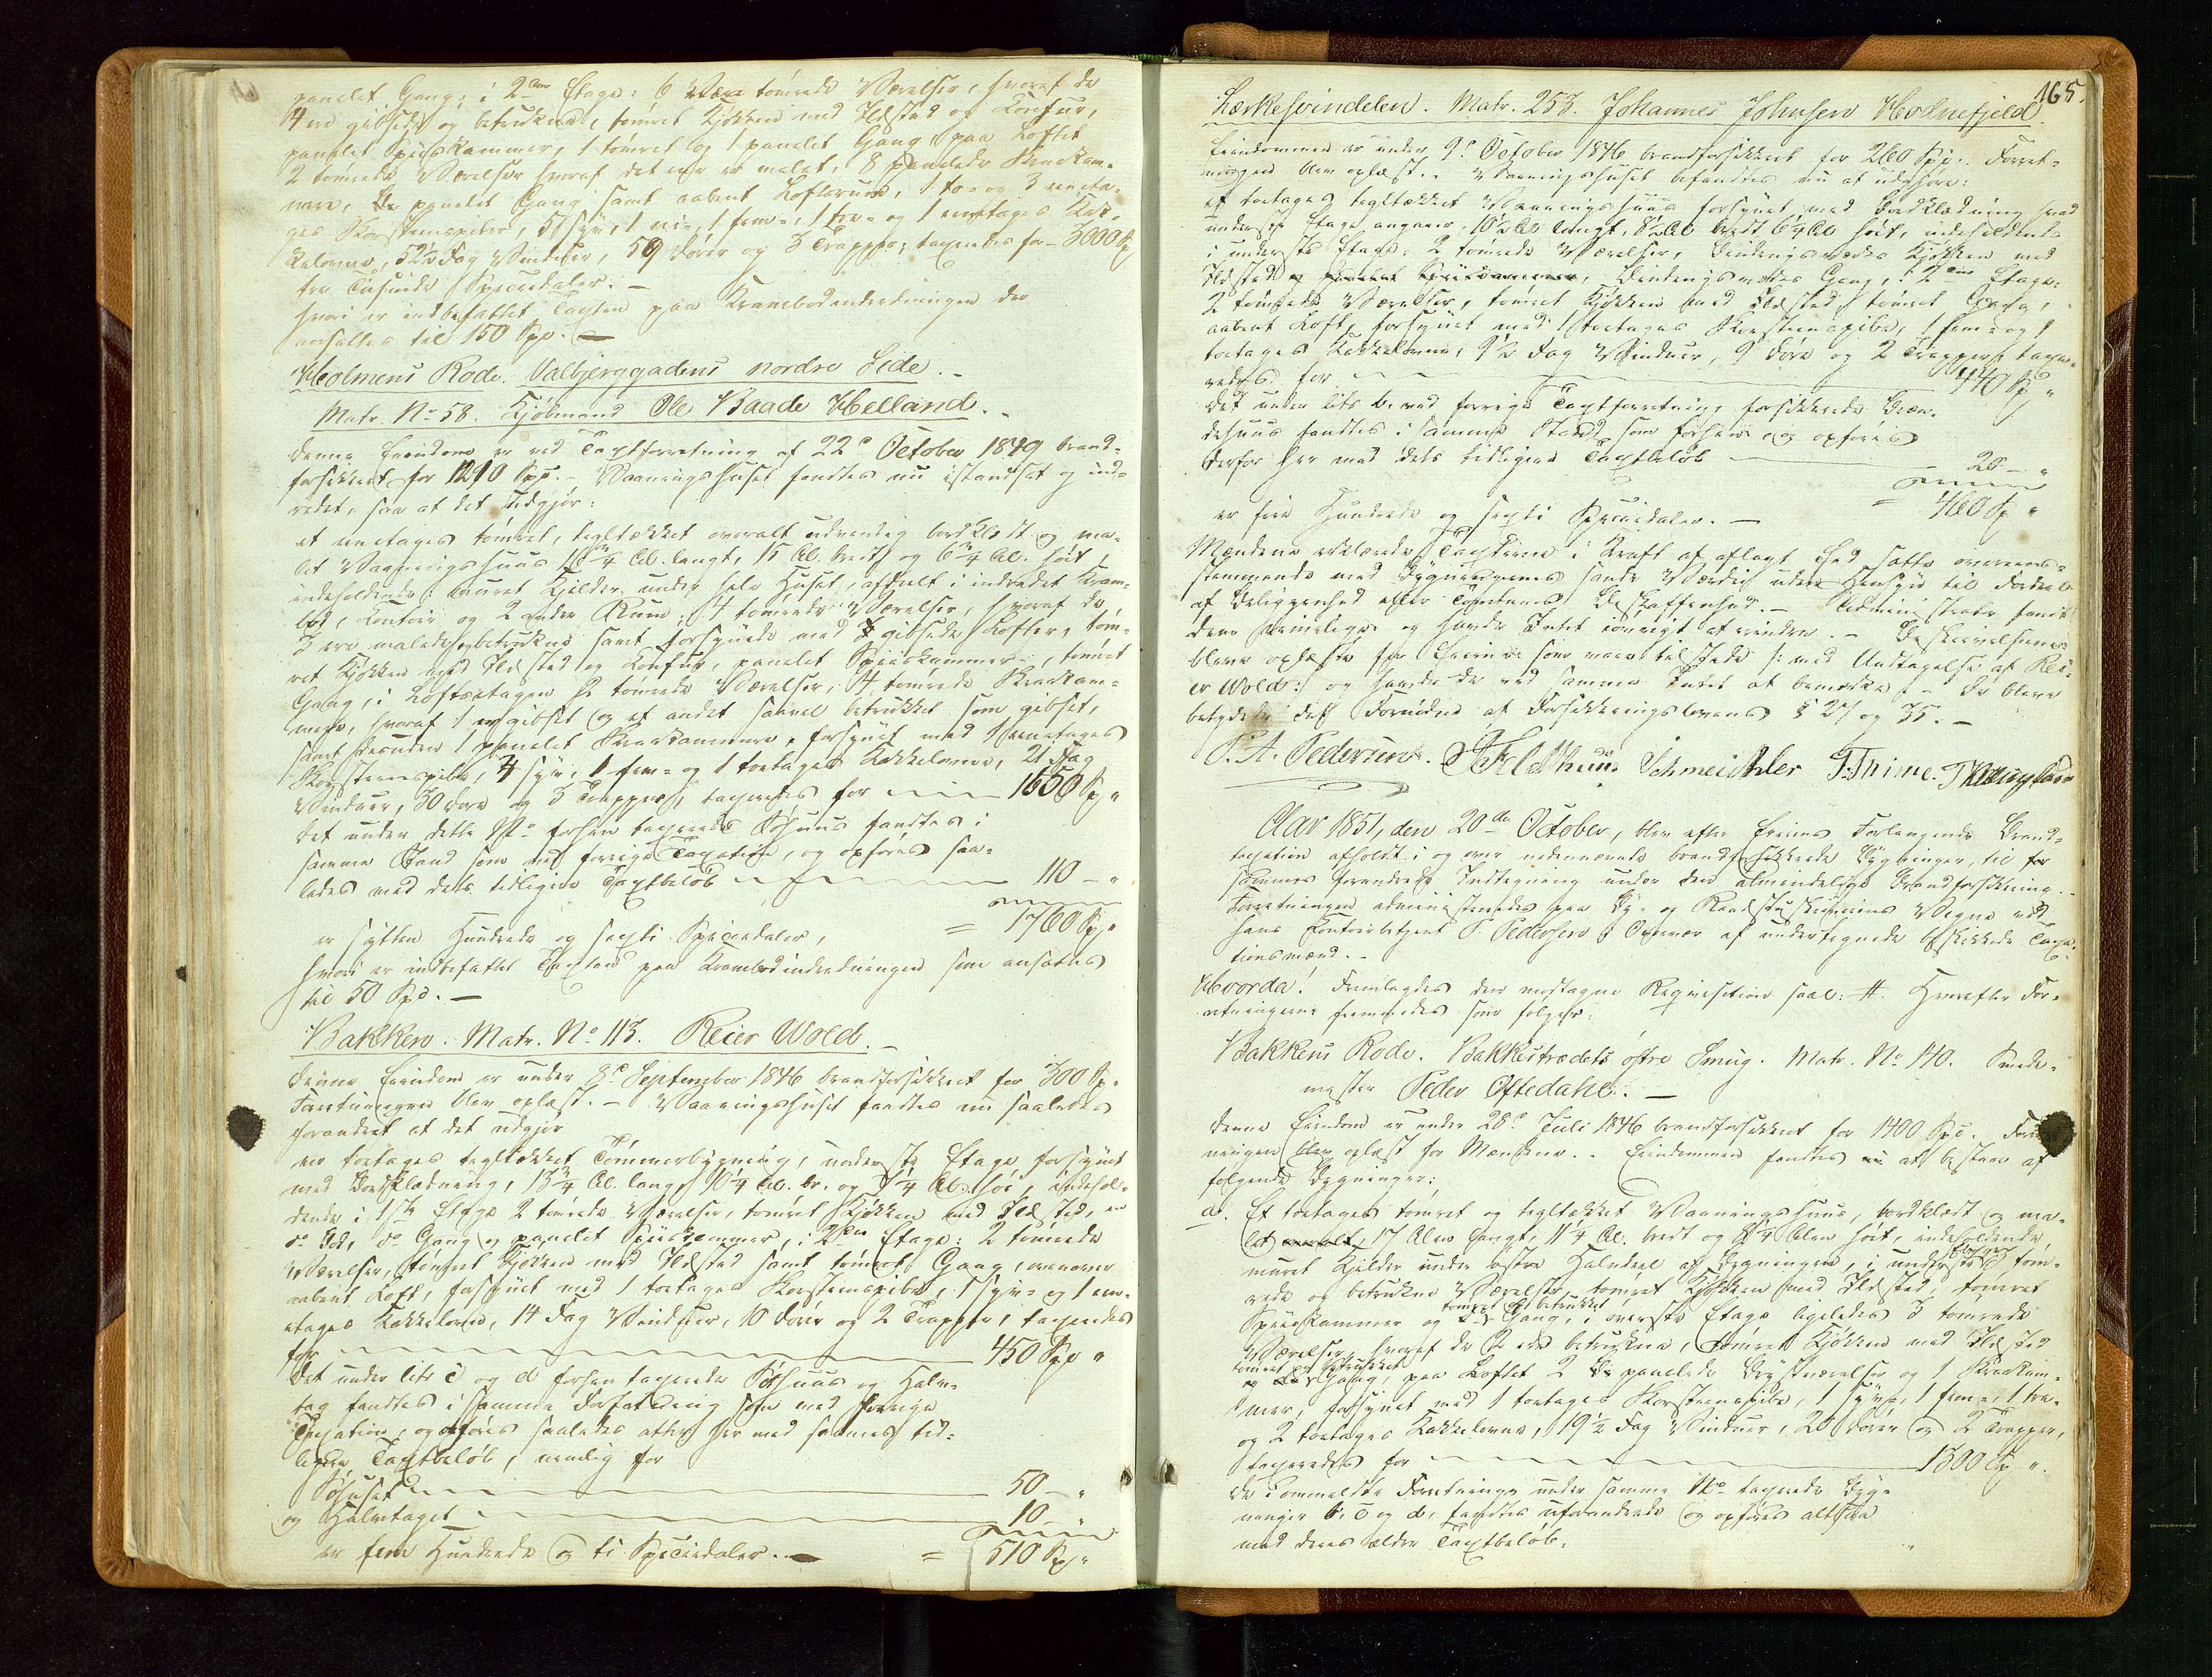 panelet Gang; i 2den Etage: 6 tømrede Værelser, hvoraf de
4 ere gibsede og betrukne, tømret Kjøkken med Ildsted og Komfur,
panelet Spiiskammer, 1 tømret og 1 panelet Gang, paa Loftet
2 tømrede Værelser hvoraf det ene er malet, 8 panelede Kvistkam-
mere, panelet Gang samt aabent Loftsrum, 1 to- og 3 eneta-
ges Skorsteenspiber, 5 syv, 1 ni-, 1 fem-, 1 tre- og 1 enetages Kak-
kelovne, 52½ Fag Vinduer, 59 Døre og 3 Trapper; taxeredes for - 3000 Sp
tre Tusinde Speciedaler. -
hvori er indbefattet Taxten paa Krambodindredningen der
ansattes til 150 Spd. -
Holmens Rode. Valbjerggadens nordre Side. -
Matr. No 58. Kjøbmand Ole Baade Helland. -
Denne Eiendom er ved Taxtforretning af 22de October 1849 brand-
forsikkret for 1210 Spd. - Vaaningshuset fandtes nu istandsat og ind-
redet, saa at det udgjør:
et eenetages tømret, tegltækket overalt udvendig bordklædt og ma-
let Vaaningshuus 16¾ Al. langt, 15 Al. bredt og 6¾ Al. høit,
indeholdende: muret Kjelder under hele Huset, afdeelt i indredet Kram-
bod, Contoir og 2 andre Rum; 4 tømrede Værelser, hvoraf de
3 ere malede og betrukne samt forsynede med gibsede Lofter, tøm-
ret Kjøkken med Ildsted og Komfur, panelet Spiiskammer, tømret
Gang, i Loftsetagen 2 tømrede Værelser, 4 tømrede Kvistkam-
mere, hvoraf 1 er gibset og et andet saavel betrukket som gibset,
samt desuden 1 panelet Kvistkammer, forsynet med 1 eenetages
Skorsteenspibe, 4 syv, 1 fem- og 1 toetages Kakkelovne, 21 Fag
Vinduer, 30 Døre og 3 Trapper, taxeredes for - 1650 Sp "
Det under dette No forhen taxerede Søhuus fandtes i
samme Stand som ved forrige Taxation, og opføres saa-
ledes med dets tidligere Taxtbeløb - 110 - "
er sytten Hundrede og sexti Speciedaler, = 1760 Sp "
hvori er indbefattet Taxten paa Krambodindredningen som ansattes
til 50 Spd. -
Bakken. Matr. No 113. Reier Wold. -
Denne Eiendom er under 8de September 1846 brandforsikkret for 300 Sp.
Forretningen blev oplæst. - Vaaningshuset fandtes nu saaledes
forandret at det udgjør
en toetages tegltækket Tømmerbygning, underste Etage forsynet
med Bordklædning, 13¾ Al. langt 10¼ Al. br. og 7¼ Al. høi, indehol-
dende i 1ste Etage 2 tømrede Værelser, tømret Kjøkken med Ildsted, en
do do, do Gang og panelet Spiiskammer, i 2den Etage: 2 tømrede
Værelser, tømret Kjøkken med Ildsted samt tømret Gang, ovenover
aabent Loft, forsynet med 1 toetages Skorsteenspibe, 1 syv- og 1 en-
etages Kakkelovn, 14 Fag Vinduer, 10 Døre og 2 Trapper, taxeredes
for - 450 Spd "
Det under litr c og d forhen taxerede Søhuus og Halv-
tag fandtes i samme Forfatning som ved forrige
Taxation, og opføres saaledes atter her med sammes tid-
ligere Taxtbeløb, nemlig for
Søhuset - 50 - "
og Halvtaget - 10 - "
er fem Hundrede og ti Speciedaler. - = 510 Sp "
165.
Lærkesvindelen. Matr. 253. Johannes Johnsen Hodnefjeld
Eiendommen er under 9de October 1846 brandforsikkret for 260 Spd. Forret-
ningen blev oplæst. Vaaningshuset befandtes nu at udgjøre:
et toetages tegltækket Vaaningshuus forsynet med Bordklædning hvad
underste Etage angaaer, 10½ Al langt, 8½ Al bredt 6¼ Al høit, indeholdende
i underste Etage: 2 tømrede Værelser, Bindingsværks Kjøkken med
Ildsted, Bindingsværks Gang, i 2den Etage:
2 tømrede Værelser, tømret Kjøkken med Ildsted, tømret Gang,
aabent Loft, forsynet med 1 toetages Skorsteenspibe, 1 fem- og 1
toetages Kakkelovne, 9½ Fag Vinduer, 9 Døre og 2 Trapper; taxe-
redes for - 440 Sp "
Det under litr b. ved forrige Taxtforretning forsikkrede Bræn-
dehuus fandtes i samme Stand som forhen, og opføres
derfor her med dets tidligere Taxtbeløb - 20 - "
er fire Hundrede og sexti Speciedaler. - = 460 Sp "
Mændene erklærede Taxterne i Kraft af aflagt Eed satte overeens-
stemmende med Bygningernes sande Værdie uden Hensyn til Fordele
af Beliggenhed eller Tomternes Beskaffenhed. - Administrator fandt
dem rimelige og havde Intet imod at erindre. - Beskrivelserne
bleve oplæste for Eierne som vare tilstede /: med Undtagelse af Rei-
er Wold :/ og havde de ved samme Intet at bemærke. - De bleve
betydede det Fornødne af Forsikkringslovens § 27 og 35. -
P. A. Pedersen. Schmeichler T. Thime.
Aar 1851, den 20de October, blev efter Eiernes Forlangende Brand-
taxation afholdt i og over nedennævnte brandforsikkrede Bygninger, til
sammes forandrede Indtegning under den almindelige Brandforsikkring. -
Forretningen administreredes paa By- og Raadstueskriverens Vegne ved
hans Contoirbetjent P. Pedersen i Overvær af undertegnede beskikkede Taxa-
tionsmænd. -
Hvorda: Fremlagdes den modtagne Requisition saal: #. Hvorefter For-
retningerne fremmedes som følger:
Bakkens Rode. Bakkestrædets østre Smug. Matr. No 140. Smede-
mester Peder Oftedahl. -
Denne Eiendom er under 28de Juli 1846 brandforsikkret for 1400 Spd. Forret-
ningen blev oplæst for Mændene. - Eiendommen fandtes nu at bestaae af
følgende Bygninger:
a. Et toetages tømret og tegltækket Vaaningshuus, bordklædt og ma-
let, 17 Alen langt, 11¼ Al. bredt og 8¼ Alen høit, indeholdende,
muret Kjelder under østre Halvdeel af Bygningen, i underste tøm-
rede og betrukne Værelser, tømret Kjøkken med Ildsted, tømret
Spiiskammer og tømret og betrukket Gang, i øverste Etage ligeledes 3 tømrede
Værelser, hvoraf de 2 ere betrukne, tømret Kjøkken med Ildsted
tømret og betrukket Gang, paa Loftet 2 panelede Qvistværelser og 1 Kvistkam-
mer, forsynet med 1 toetages Skorsteenspibe, 1 syv-, 1 fem-, 1 tre-
og 2 toetages Kakkelovne, 19½ Fag Vinduer, 20 Døre og 2 Trapper,
taxeredes for - 1300 Sp "
De i ommeldte Forretning under samme No taxerede Byg-
ninger b, c og d, fandtes uforandrede og opføres altsaa
med deres ældre Taxtbeløb.